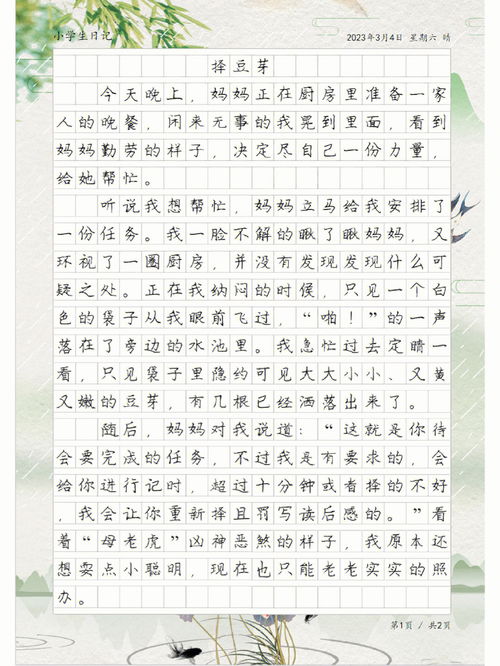 小学生日记
2023年3月4日 星期六 晴
择豆芽
今天晚上，妈妈正在厨房里准备一家
人的晚餐，闲来无事的我晃到里面，看到
妈妈勤劳的样子，决定尽自己一份力量，
给她帮忙。
听说我想帮忙，妈妈立马给我安排了
一份任务。我一脸不解的瞅了瞅妈妈，又
环视了一圈厨房，并没有发现发现什么可
疑之处。正在我纳闷的时候，只见一个白
色的袋子从我眼前飞过，“啪！”的一声
落在了旁边的水池里。我急忙过去定睛一
看，只见袋子里隐约可见大大小小、又黄
又嫩的豆芽，有几根已经洒落出来了。
随后，妈妈对我说道：“这就是你待
会要完成的任务，不过我是有要求的，会
给你进行记时，超过十分钟或者择的不好
，我会让你重新择且罚写读后感的。”看
着“母老虎”凶神恶煞的样子，我原本还
想耍点小聪明，现在也只能老老实实的照
办。
第1页 / 共2页